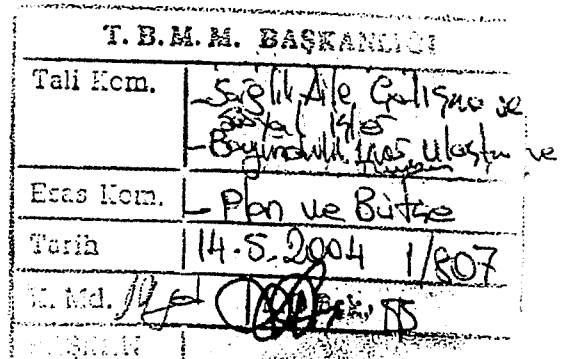 T. B. M. M. BAŞKANLIĞI
Tali Kom.
- Sağlık Aile Çalışma ve
Sosyal İşler
- Bayındırlık İmar Ulaştırma ve
Turizm
Esas Kom.
- Plan ve Bütçe
Tarih
14.5.2004 1/807
K. Md.
BAŞKAN